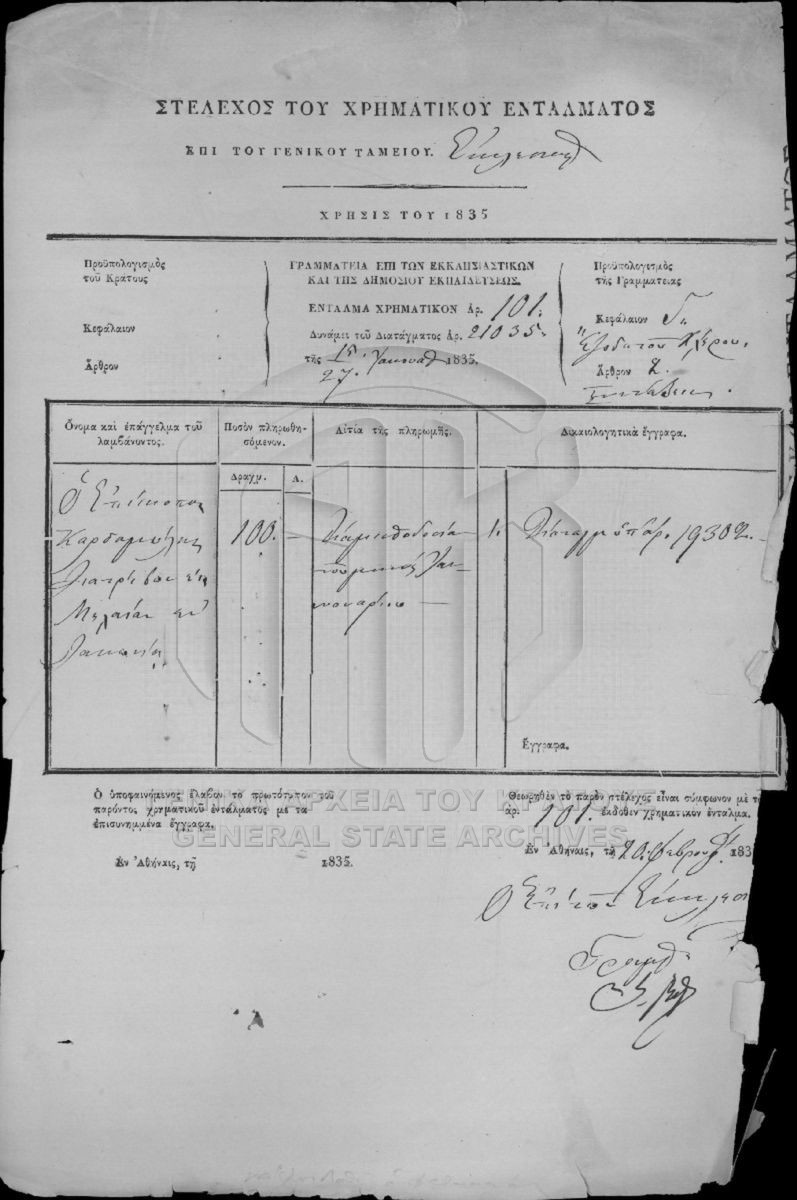 ΣΤΕΛΕΧΟΣ ΤΟΥ ΧΡΗΜΑΤΙΚΟΥ ΕΝΤΑΛΜΑΤΟΣ
ΕΠΙ ΤΟΥ ΓΕΝΙΚΟΥ ΤΑΜΕΙΟΥ.
ΧΡΗΣΙΣ ΤΟΥ 1835
Προϋπολογισμὸς
τοῦ Κράτους
Κεφάλαιον
Ἄρθρον
ΓΡΑΜΜΑΤΕΙΑ ΕΠΙ ΤΩΝ ΕΚΚΛΗΣΙΑΣΤΙΚΩΝ
ΚΑΙ ΤΗΣ ΔΗΜΟΣΙΟΥ ΕΚΠΑΙΔΕΥΣΕΩΣ.
ΕΝΤΑΛΜΑ ΧΡΗΜΑΤΙΚΟΝ ἀρ. 101.
Δυνάμει τοῦ Διατάγματος ἀρ. 21035.
τῆς 15/27 1835.
Προϋπολογισμὸς
τῆς Γραμματείας
Κεφάλαιον Γ.
Ἔξοδα τοῦ Κλήρου.
Ἄρθρον 2.
Ὄνομα καὶ ἐπάγγελμα τοῦ
λαμβάνοντος.
Ποσὸν πληρωθη-
σόμενον.
Αἰτία τῆς πληρωμῆς.
Δικαιολογητικὰ ἔγγραφα.
Δραχμ. Λ.
Ὁ Ἐπίσκοπος
Καρδαμύλης
διατρίβων εἰς
ἐν
Λακωνίᾳ
100. —
Διὰ μισθοδοσίαν
τοῦ μηνὸς Ἰα-
νουαρίου —
1. Διαταγὴ ὑπ' ἀρ. 19302.
Ἔγγραφα.
Ὁ ὑποφαινόμενος ἔλαβον τὸ πρωτότυπον τοῦ
παρόντος χρηματικοῦ ἐντάλματος μὲ τὰ
ἐπισυνημμένα ἔγγραφα.
Ἐν Ἀθήναις, τῇ 1835.
Θεωρηθὲν τὸ παρὸν στέλεχος εἶναι σύμφωνον μὲ
ἀρ. 101. ἐκδοθὲν χρηματικὸν ἔνταλμα.
Ἐν Ἀθήναις, τῇ 20. Φεβρουαρ. 183
ΓΕΝΙΚΑ ΑΡΧΕΙΑ ΤΟΥ ΚΡΑΤΟΥΣ
GENERAL STATE ARCHIVES